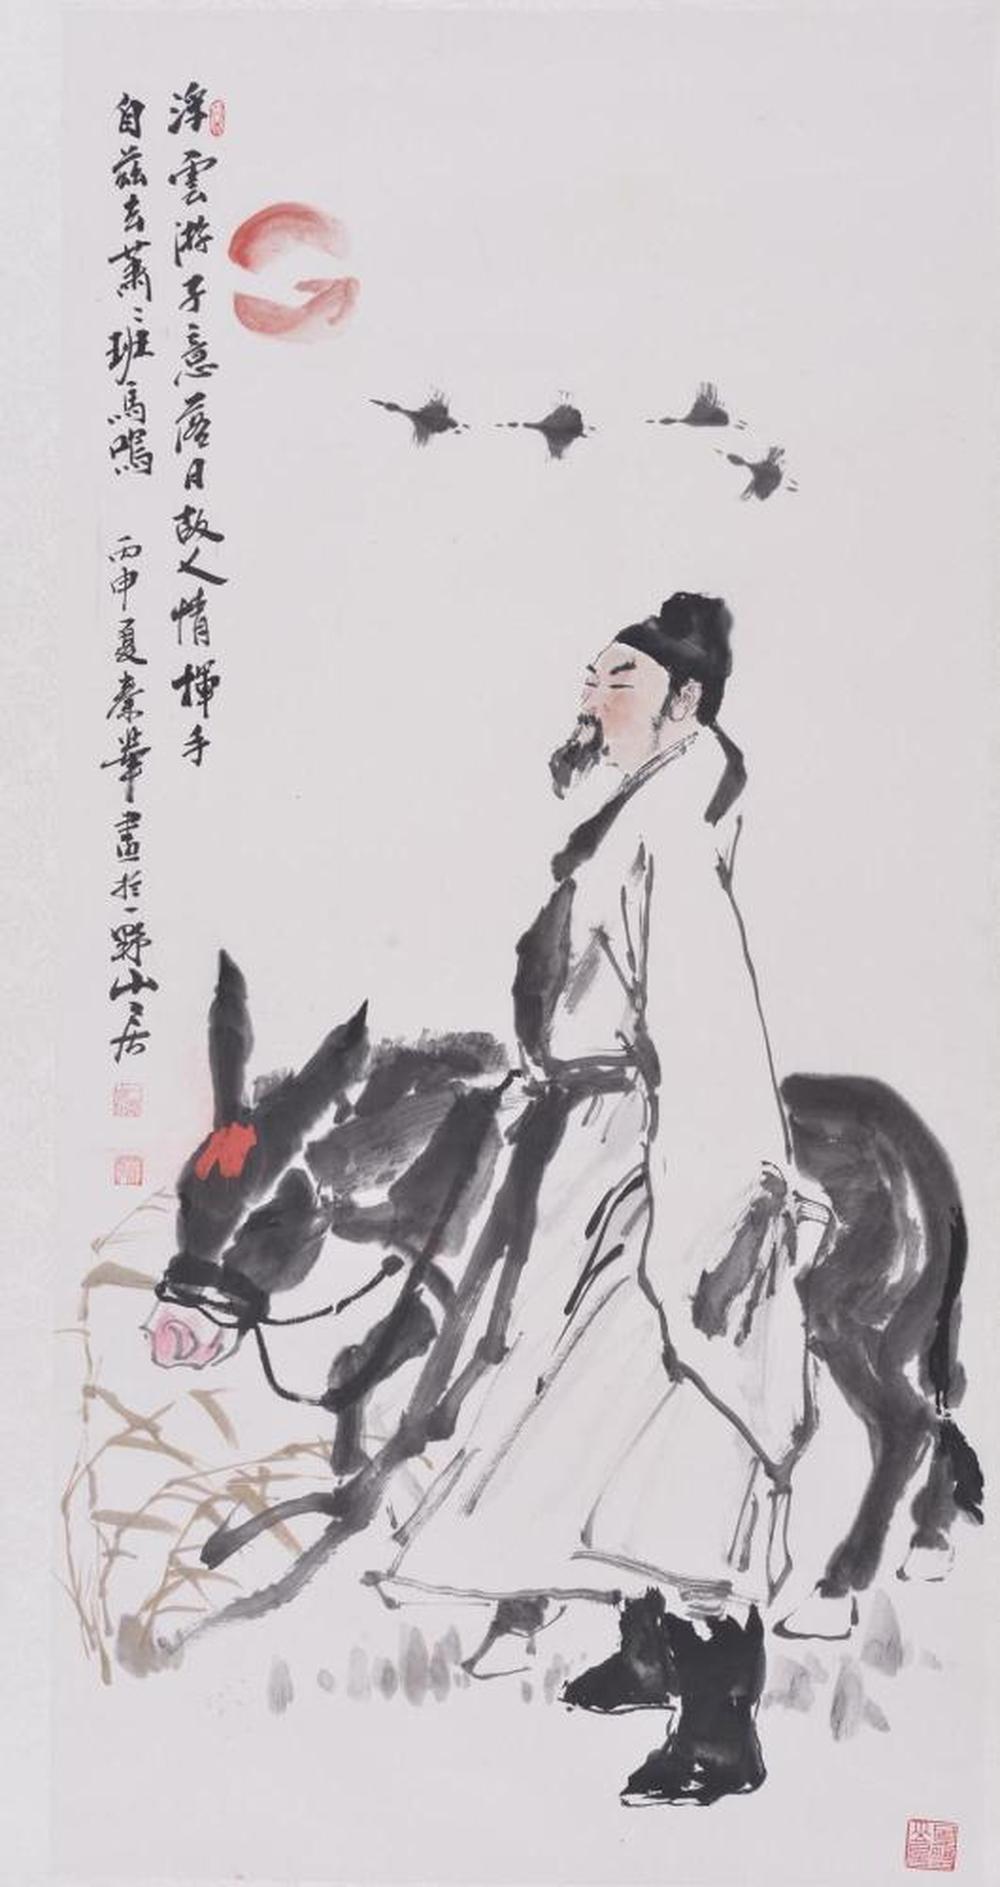 浮雲游子意落日故人情揮手
自茲去蕭〻班馬鳴 丙申夏秦華畫於一野山居